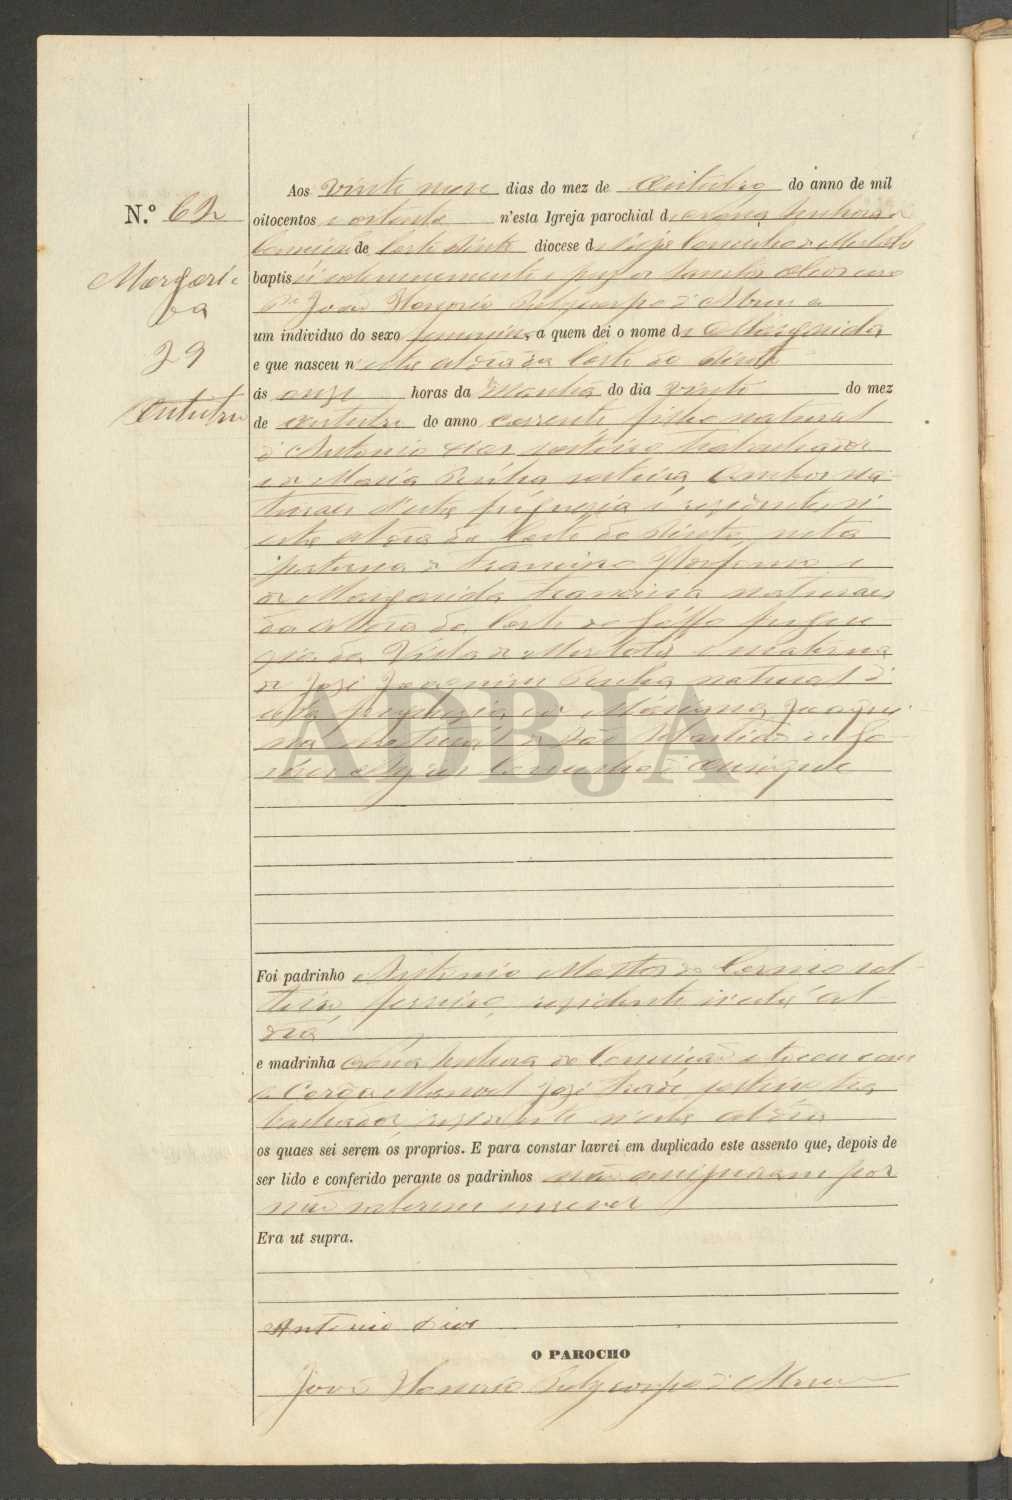 N.º 62
Margari
da
29
Outubro
Aos vinte nove dias do mez de Outubro do anno de mil
oitocentos e oitenta n'esta Igreja parochial de Nossa Senhora da
Conceição de Corte do Pinto diocese de Beja Concelho de Mertola
baptisei solemnemente e puz os Santos Oleos
João Honorio d'Abreu a
um individuo do sexo femenino a quem dei o nome de Margarida
e que nasceu n'esta aldeia da Corte do Pinto
ás onze horas da manhã do dia vinte do mez
de Outubro do anno corrente filha natural
d'Antonio Dias solteiro trabalhador
e de Maria Penha solteira ambos na
turaes d'esta freguezia e rezidentes n'
esta aldeia da Corte do Pinto, neta
paterna de Francisco e
de Margarida Francisca naturaes
da aldeia da Corte do Gafo fregue
zia da Villa de Mertola e materna
de José Joaquim Penha natural d'
esta freguezia e de Marianna Joaqui
na natural de São Sebastião de Go
mes Ayres Concelho d'Ourique
Foi padrinho Antonio Mattos do Carmo sol
teiro, ferreiro, rezidente n'esta al
deia
e madrinha Nossa Senhora da Conceição e tocou com
a Corôa Manoel José solteiro tra
balhador rezidente n'esta aldeia
os quaes sei serem os proprios. E para constar lavrei em duplicado este assento que, depois de
ser lido e conferido perante os padrinhos não assignaram por
não saberem escrever
Era ut supra.
Antonio Dias
O PAROCHO
João Honorio d'Abreu
ADBJA